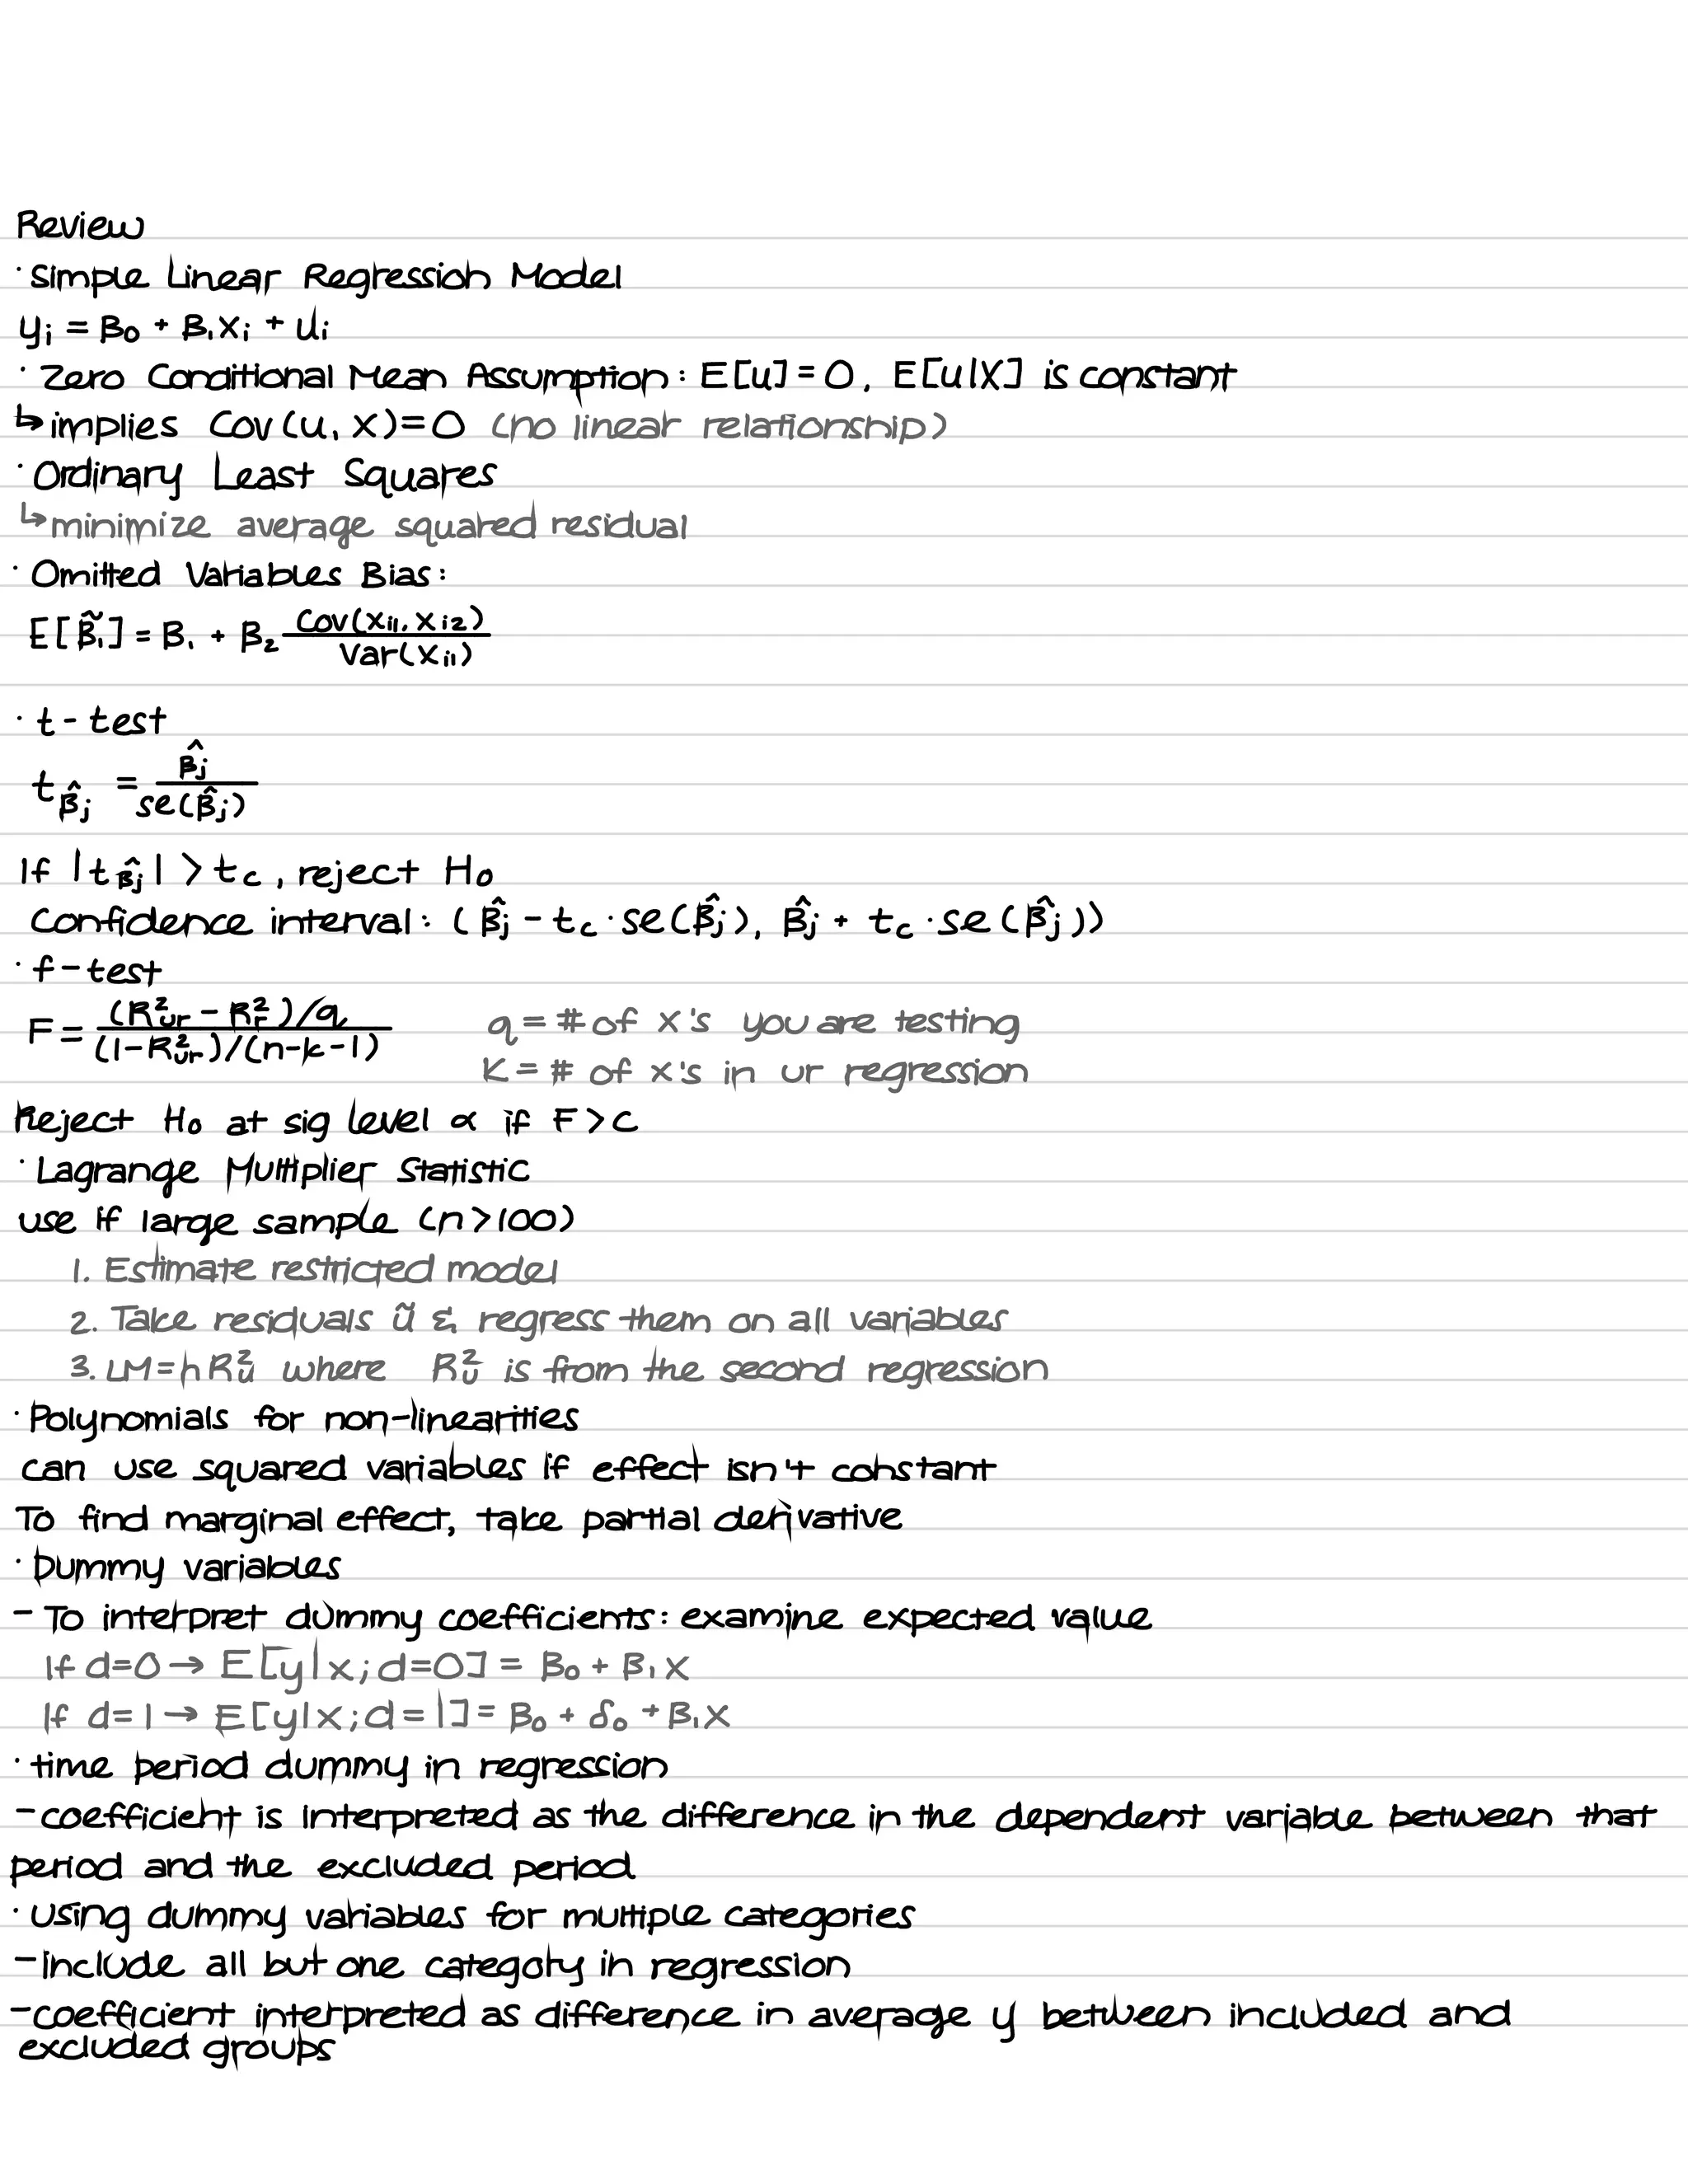 Review
· Simple Linear Regression Model
yᵢ = B₀ + B₁xᵢ + uᵢ
· Zero Conditional Mean Assumption: E[u] = 0, E[u|X] is constant
↳ implies Cov(u, x) = 0 (no linear relationship)
· Ordinary Least Squares
↳ minimize average squared residual
· Omitted Variables Bias:
E[B̃₁] = B₁ + B₂ Cov(xᵢ₁, xᵢ₂) / Var(xᵢ₁)
· t-test
t_B̂ⱼ = B̂ⱼ / se(B̂ⱼ)
If |t_B̂ⱼ| > t_c, reject H₀
Confidence interval: (B̂ⱼ - t_c · se(B̂ⱼ), B̂ⱼ + t_c · se(B̂ⱼ))
· f-test
F = (R²ur - R²r)/q / (1-R²ur)/(n-k-1)
q = # of x's you are testing
K = # of x's in ur regression
Reject H₀ at sig level α if F > c
· Lagrange Multiplier Statistic
use if large sample (n > 100)
1. Estimate restricted model
2. Take residuals ũ & regress them on all variables
3. LM = nR²ũ where R²ũ is from the second regression
· Polynomials for non-linearities
can use squared variables if effect isn't constant
To find marginal effect, take partial derivative
· Dummy variables
- To interpret dummy coefficients: examine expected value
If d=0 → E[y|x; d=0] = B₀ + B₁x
If d=1 → E[y|x; d=1] = B₀ + δ₀ + B₁x
· time period dummy in regression
- coefficient is interpreted as the difference in the dependent variable between that
period and the excluded period
· Using dummy variables for multiple categories
- Include all but one category in regression
- coefficient interpreted as difference in average y between included and
excluded groups